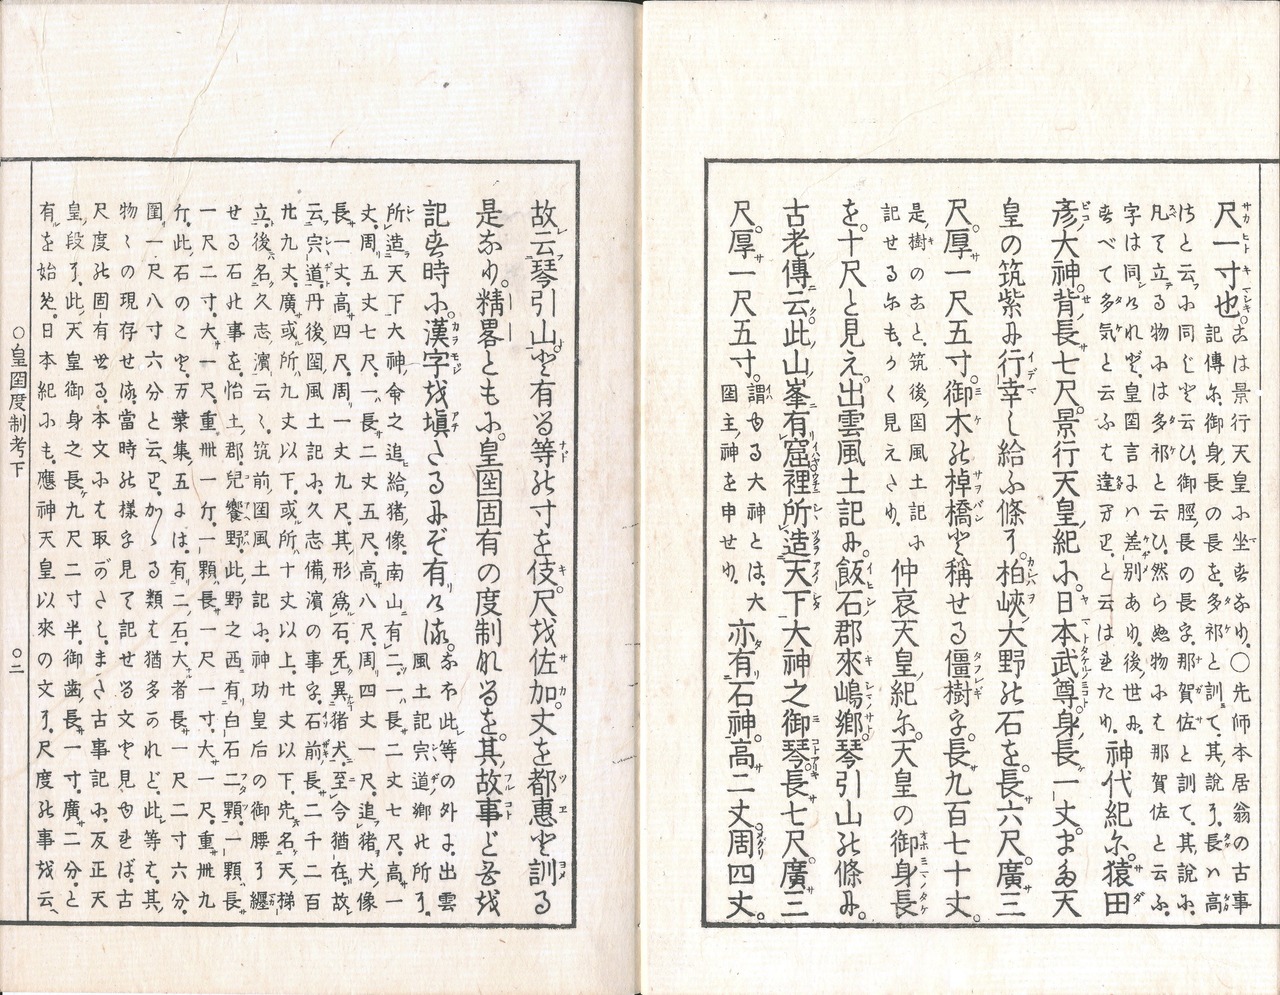 尺一寸也。
こは景行天皇に坐すなり。〇先師本居翁の古事
記傳に、御身長の長を、多祁と訓て、其説に、長は高
けと云に同じと云ひ、御脛長の長を、那賀佐と訓て、其説に、
凡て立る物には多祁と云ひ、然らぬ物には那賀佐と云ふ、
字は同じけれど、皇国言には差別あり、後世に、
すべて多気と云ふは違へり、と云はれたり。
神代紀に、猿田
彦大神背長七尺。景行天皇紀に、日本武尊身長一丈。また天
皇の筑紫に行幸し給ふ條に、柏峡大野の石を、長六尺。廣三
尺。厚一尺五寸。御木の棹橋と稱せる僵樹を、長九百七十丈。
是樹のこと、筑後国風土記に
記せるにも、かく見えたり。
仲哀天皇紀に、天皇の御身長
を、十尺と見え、出雲風土記に、飯石郡來嶋郷琴引山の條に、
古老傳云、此山峯有窟、裡所造天下大神之御琴。長七尺。廣三
尺。厚一尺五寸。
謂ゆる大神とは、大
国主神を申せり。
亦有石神。高二丈。周四丈。
故云琴引山と有る等の寸を伎。尺を佐加。丈を都恵と訓る
是なり。精畧ともに、皇国固有の度制なるを、其故事ども
記す時に、漢字を塡たるにぞ有ける。
なほ此等の外に、出雲
風土記宍道郷の所に、
所造天下大神命之追給猪像、南山有二。一長二丈七尺。高一
丈。周五丈七尺。一長二丈五尺。高八尺。周四丈一尺。追猪犬像
長一丈。高四尺。周一丈九尺。其形爲石。旡異猪犬。至今猶在。故
云宍道。丹後国風土記に、久志備濱の事を、石前長二千二百
廿九丈。廣或所九丈以下。或所十丈以上廿丈以下。先名天梯
立。後名久志濱云〻。筑前国風土記に、神功皇后の御腰に纒
せる石の事を、怡土郡、兒饗野。此野之西有白石二顆。一顆長
一尺二寸。大一尺。重卅一斤。一顆長一尺一寸。大一尺。重卅九
斤。此石のこと、万葉集五には、有二石。大者長一尺二寸六分。
圍一尺八寸六分と云へり。かゝる類は猶多かれど、此等は、其
物〻の現存せる、當時の様を見て記せる文と見ゆれば、古
尺度の固有せる、本文には取がたし。また古事記に、反正天
皇段に、此天皇御身之長九尺二寸半。御歯長一寸。廣二分。と
有るを始め、日本紀にも、應神天皇以來の文に、尺度の事を云へ
〇皇国度制考下
〇二